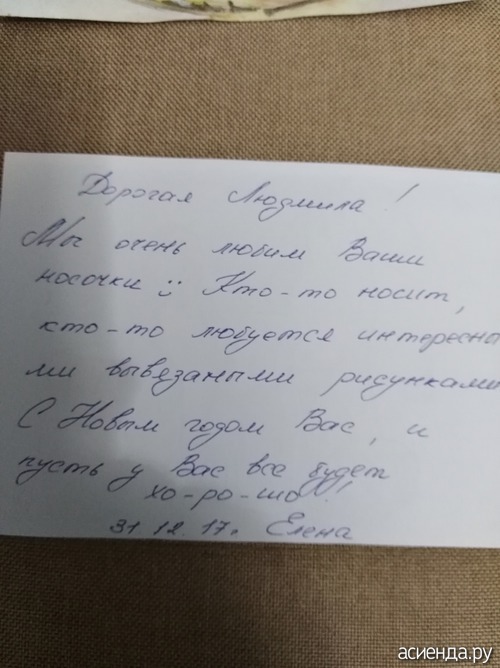 Дорогая Людмила!
Мы очень любим Ваши
носочки :) Кто-то носит,
кто-то любуется интересны
ми вывязаными рисунками
С Новым годом Вас, и
пусть у Вас все будет
хо-ро-шо!
31.12.17г. Елена
асиенда.ру